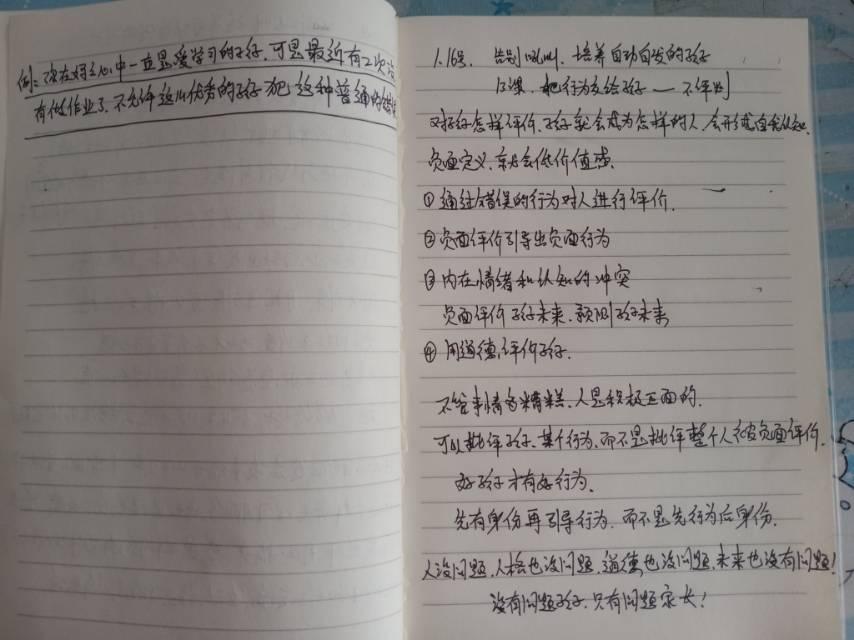 例:你在妈心中一直是爱学习的孩子,可是最近有2次没
有做作业了,不允许这么优秀的孩子犯这种普通的错误
1.16号. 告别吼叫,培养自动自发的孩子
13课. 把行为交给孩子——不评判
对孩子怎样评价,孩子就会成为怎样的人,会形成自我认知.
负面定义,就会低价值感.
①通过错误的行为对人进行评价.
②负面评价引导出负面行为
③内在情绪和认知的冲突
负面评价孩子未来、预测孩子未来
④用道德评价孩子.
不管事情多糟糕、人是积极正面的.
可以批评孩子、某个行为、而不是批评整个人被负面评价.
好孩子才有好行为.
先有身份再引导行为. 而不是先行为后身份.
人没问题、人格也没问题、道德也没问题、未来也没有问题!
没有问题孩子、只有问题家长!